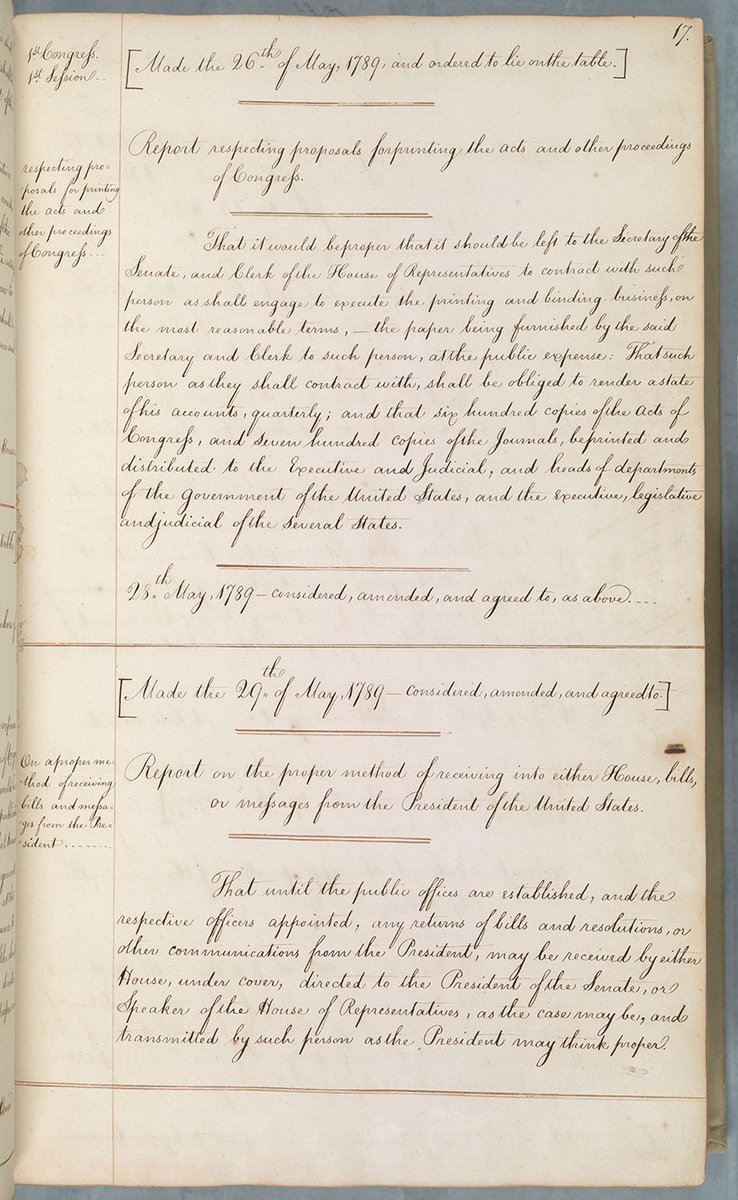 17.
1st Congress.
1st Session..
[Made the 26th of May, 1789, and ordered to lie on the table.]
respecting pro-
posals for printing
the acts and
other proceedings
of Congress...
Report respecting proposals for printing the acts and other proceedings
of Congress.
That it would be proper that it should be left to the Secretary of the
Senate, and Clerk of the House of Representatives to contract with such
person as shall engage to execute the printing and binding business, on
the most reasonable terms, — the paper being furnished by the said
Secretary and Clerk to such person, at the public expense: That such
person as they shall contract with, shall be obliged to render a state
of his accounts, quarterly; and that six hundred copies of the acts of
Congress, and seven hundred copies of the Journals, be printed and
distributed to the Executive and Judicial, and heads of departments
of the government of the United States, and the executive, legislative
and judicial of the several States.
28th May, 1789 — considered, amended, and agreed to, as above....
[Made the 29th of May, 1789 — considered, amended, and agreed to.]
On a proper me-
thod of receiving
bills and messa-
ges from the Pre-
sident.......
Report on the proper method of receiving into either House, bills,
or messages from the President of the United States.
That until the public offices are established, and the
respective officers appointed, any returns of bills and resolutions, or
other communications from the President, may be received by either
House, under cover, directed to the President of the Senate, or
Speaker of the House of Representatives, as the case may be, and
transmitted by such person as the President may think proper.